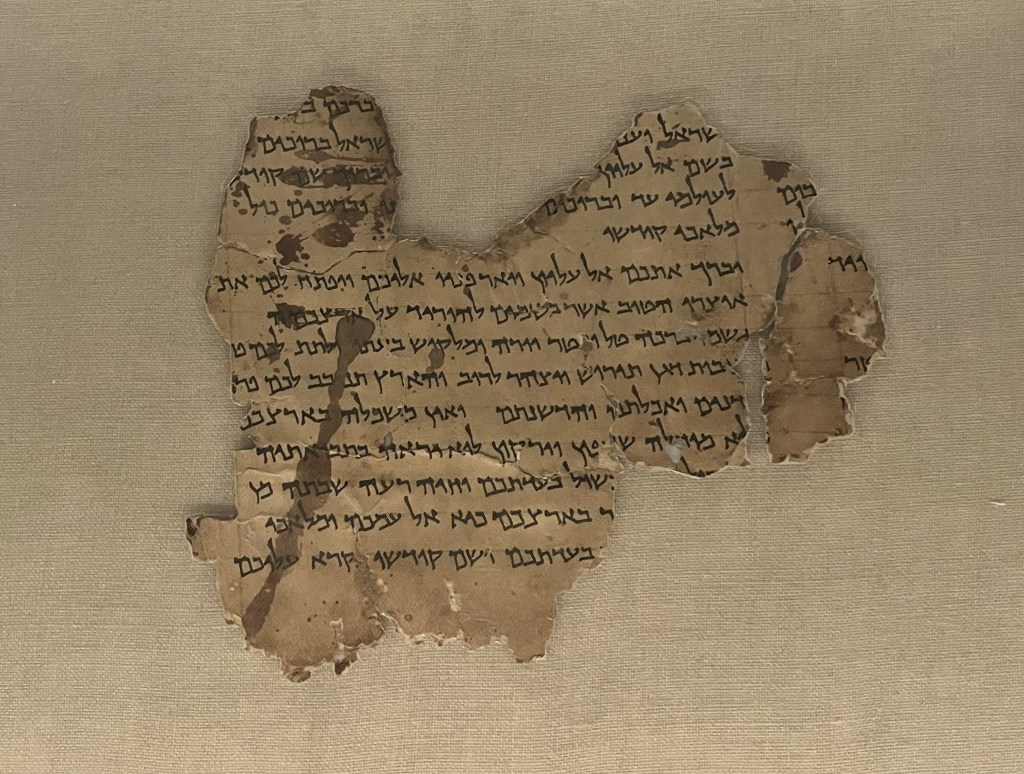 ברכם ב
שראל וענ שראל ברוכים
בשם אל עליון וברוך שם קודש
לעולמי עד וברוכים וברוכים כול
מלאכי קודשו
יברך אתכם אל עליון ויאר פניו אליכם ויפתח לכם את
אוצרו הטוב אשר בשמים להוריד על ארצכם
גשמי ברכה טל ומטר יורה ומלקוש בעתו ולתת לכם
דגן תירוש ויצהר לרוב והארץ תנובב לכם פר
דנים ואכלתם והדשנתם ואין משכלה בארצכם
לא מוחלה שדפון וירקון לוא יראה בתבואתיה
שול בעדתכם וחיה רעה שבתה מן
ר בארצכם כיא אל עמכם ומלאכי
בעדתכם ושם קודשו נקרא עליכם